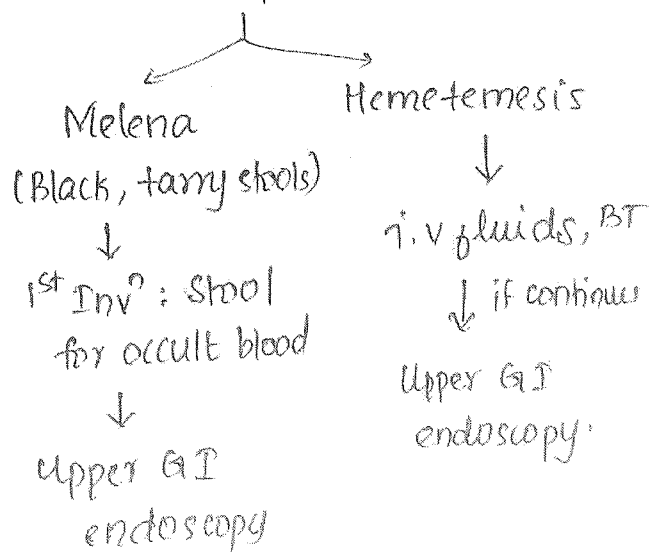 Melena
(Black, tarry stools)
1st Invn : Stool
for occult blood
Upper GI
endoscopy
Hemetemesis
i.v fluids, BT
if continues
Upper GI
endoscopy.